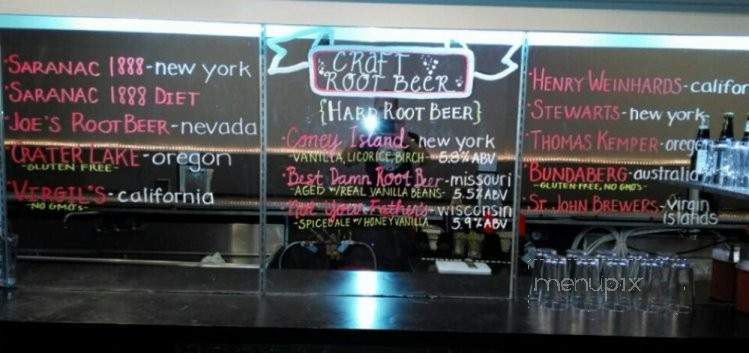 SARANAC 1888 - new york
SARANAC 1888 DIET
JOE'S ROOT BEER - nevada
CRATER LAKE - oregon
- GLUTEN FREE -
VIRGIL'S - california
- NO GMO'S -
CRAFT
ROOT BEER
{HARD ROOT BEER}
Coney Island - new york
- VANILLA, LICORICE, BIRCH - 5.8% ABV
Best Damn Root Beer - missouri
- AGED W/REAL VANILLA BEANS - 5.5% ABV
Not Your Father's - wisconsin
- SPICED ALE W/ HONEY VANILLA 5.9% ABV
HENRY WEINHARDS - califor
STEWARTS - new york
THOMAS KEMPER - oregon
BUNDABERG - australia
- GLUTEN FREE, NO GMO'S
ST JOHN BREWERS - virgin
islands
menupix